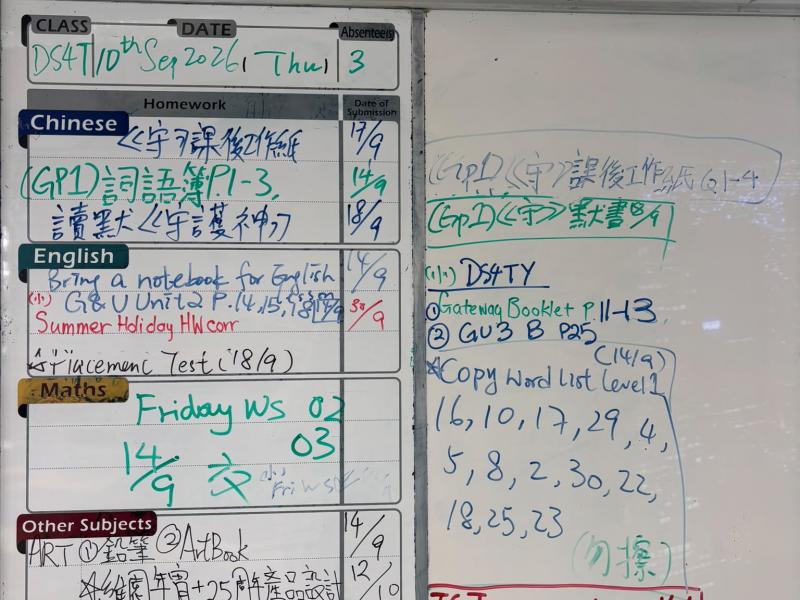 CLASS DATE Absentee(s)
DS4T 10th Sep 2026, Thu, 3
Homework Date of Submission
Chinese
《守》課後工作紙 17/9
(GP1) 詞語簿 P.1-3, 14/9
讀默《守護神》 18/9
English
Bring a notebook for English 14/9
(小) G&U Unit2 P.14,15,
Summer Holiday HW corr 30/9
☆Placement Test (18/9)
Maths
Friday WS 02
03
14/9 交
Other Subjects
ART ①鉛筆 ②ArtBook 14/9
25周年產品設計 12/10
(Gp1)《守》課後工作紙 Q1-4
(Gp1)《守》默書 18/9
(小) DS4TY
① Gateway Booklet P. 11-13
② GU3 B P25
(14/9)
☆Copy Word List Level 1
16, 10, 17, 29, 4,
5, 8, 2, 30, 22,
18, 25, 23
(勿擦)